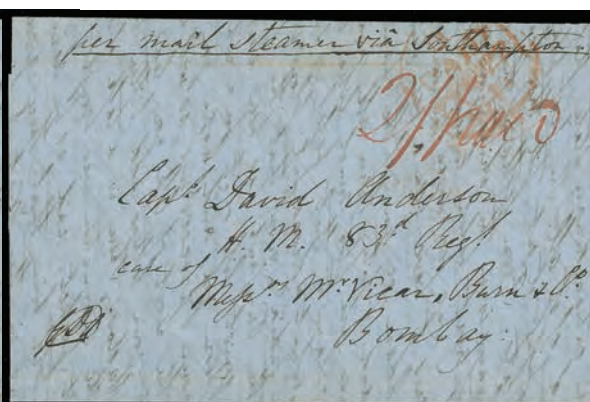 per mail steamer viâ Southampton.
2/ Paid
Capt. David Anderson
H. M. 83d Regt
care of
Messrs. McVicar, Burn & Co.
Bombay.
pd